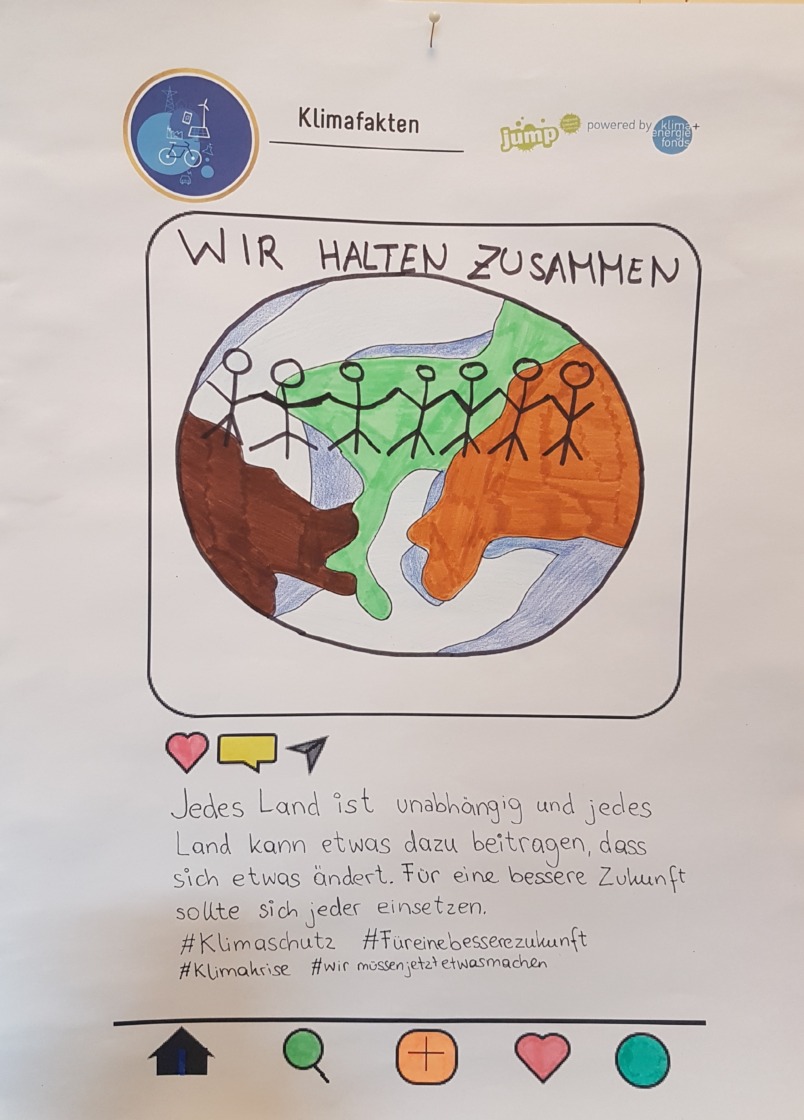 Klimafakten
jump powered by klima+ energie fonds
WIR HALTEN ZUSAMMEN
Jedes Land ist unabhängig und jedes
Land kann etwas dazu beitragen, dass
sich etwas ändert. Für eine bessere Zukunft
sollte sich jeder einsetzen.
#Klimaschutz #Füreinebesserezukunft
#Klimakrise #wirmüssenjetztetwasmachen